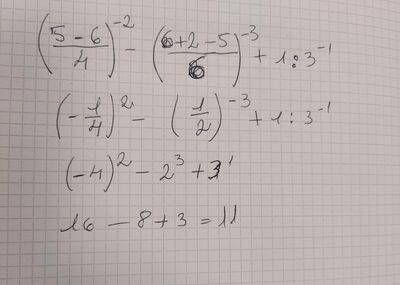 (5-6/4)^-2 - (6+2-5/6)^-3 + 1:3^-1
(-1/4)^2 - (1/2)^-3 + 1:3^-1
(-4)^2 - 2^3 + 3^1
16 - 8 + 3 = 11